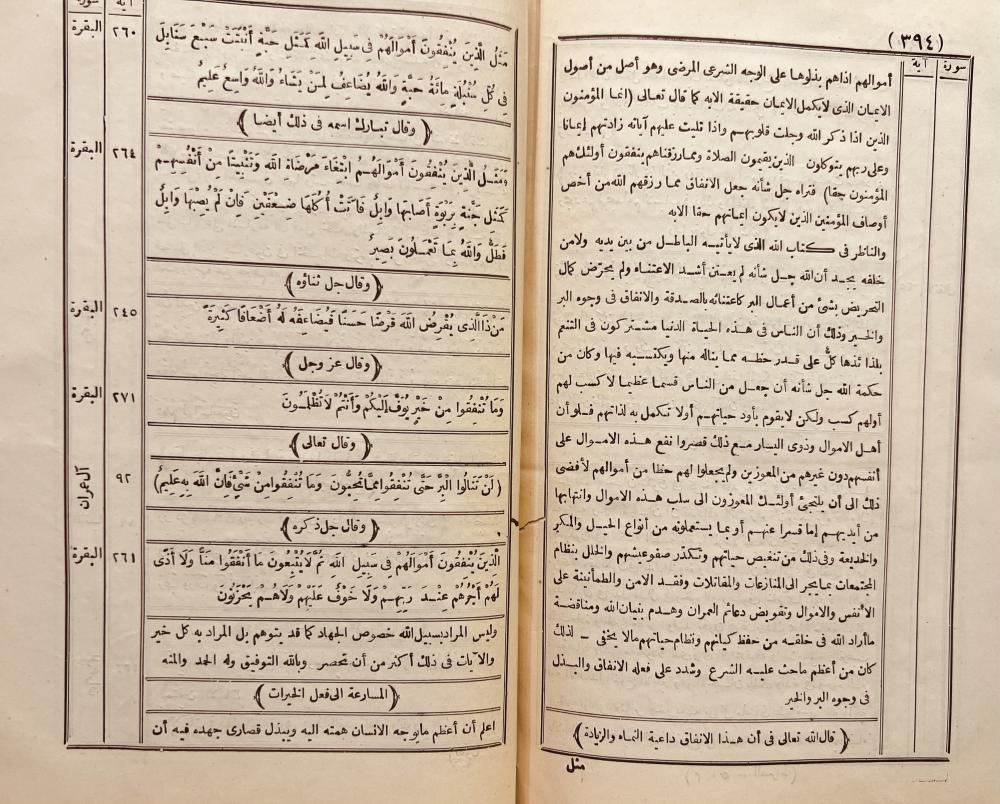 (٣٩٤)
سورة آية
أموالهم اذاهم بذلوها على الوجه الشرعى المرضى وهو أصل من أصول
الايمان الذى لايكمل الايمان حقيقة الابه كما قال تعالى (انما المؤمنون
الذين اذا ذكر الله وجلت قلوبهم واذا تليت عليهم آياته زادتهم إيمانا
وعلى ربهم يتوكلون الذين يقيمون الصلاة ومما رزقناهم ينفقون أولئك هم
المؤمنون حقا) فتراه جل شأنه جعل الانفاق مما رزقهم الله من أخص
أوصاف المؤمنين الذين لايكون ايمانهم حقا الابه
والناظر فى كتاب الله الذى لايأتيه الباطل من بين يديه ولامن
خلفه يجد أن الله جل شأنه لم يعتن أشد الاعتناء ولم يحرّض كمال
التحريض بشئ من أعمال البر كاعتنائه بالصدقة والانفاق فى وجوه البر
والخير وذلك أن الناس فى هذه الحياة الدنيا مشتركون فى التنعم
بلذائذها كلٌّ على قدر حظه مما يناله منها ويكتسبه فيها وكان من
حكمة الله جل شأنه أن جعل من الناس قسما عظيما لا كسب لهم
أولهم كسب ولكن لايقوم بأود حياتهم أولا تكمل به لذاتهم فلو أن
أهل الاموال وذوى اليسار مع ذلك قصروا نفع هذه الاموال على
أنفسهم دون غيرهم من المعوزين ولم يجعلوا لهم حظا من أموالهم لأفضى
ذلك الى أن يلتجئ أولئك المعوزون الى سلب هذه الاموال وانتهابها
من أيديهم إما قسرا عنهم أو بما يستعملونه من أنواع الحيل والمكر
والخديعة وفى ذلك من تنغيص حياتهم وتكدر صفو عيشهم والخلل بنظام
المجتمعات بما يجر الى المنازعات والمقاتلات وفقد الامن والطمأنينة على
الأنفس والاموال وتقويض دعائم العمران وهدم بنيان الله ومناقضة
ماأراد الله فى خلقه من حفظ كيانهم ونظام حياتهم مالا يخفى – لذلك
كان من أعظم ماحث عليه الشرع وشدد على فعله الانفاق والبذل
فى وجوه البر والخير
(قال الله تعالى فى أن هذا الانفاق داعية النماء والزيادة)
مثل
آية سورة
مَثَلُ الَّذِينَ يُنْفِقُونَ أَمْوَالَهُمْ فِى سَبِيلِ اللهِ كَمَثَلِ حَبَّةٍ أَنْبَتَتْ سَبْعَ سَنَابِلَ ٢٦٠ البقرة
فِى كُلِّ سُنْبُلَةٍ مِائَةُ حَبَّةٍ وَاللهُ يُضَاعِفُ لِمَنْ يَشَاءُ وَاللهُ وَاسِعٌ عَلِيمٌ
(وقال تبارك اسمه فى ذلك أيضا)
وَمَثَلُ الَّذِينَ يُنْفِقُونَ أَمْوَالَهُمُ ابْتِغَاءَ مَرْضَاةِ اللهِ وَتَثْبِيتًا مِنْ أَنْفُسِهِمْ ٢٦٤ البقرة
كَمَثَلِ جَنَّةٍ بِرَبْوَةٍ أَصَابَهَا وَابِلٌ فَآتَتْ أُكُلَهَا ضِعْفَيْنِ فَإِنْ لَمْ يُصِبْهَا وَابِلٌ
فَطَلٌّ وَاللهُ بِمَا تَعْمَلُونَ بَصِيرٌ
(وقال جل ثناؤه)
مَنْ ذَا الَّذِى يُقْرِضُ اللهَ قَرْضًا حَسَنًا فَيُضَاعِفَهُ لَهُ أَضْعَافًا كَثِيرَةً ٢٤٥ البقرة
(وقال عز وجل)
وَمَا تُنْفِقُوا مِنْ خَيْرٍ يُوَفَّ إِلَيْكُمْ وَأَنْتُمْ لَا تُظْلَمُونَ ٢٧١ البقرة
(وقال تعالى)
(لَنْ تَنَالُوا الْبِرَّ حَتَّى تُنْفِقُوا مِمَّا تُحِبُّونَ وَمَا تُنْفِقُوا مِنْ شَىْءٍ فَإِنَّ اللهَ بِهِ عَلِيمٌ) ٩٢ آل عمران
(وقال جل ذكره)
الَّذِينَ يُنْفِقُونَ أَمْوَالَهُمْ فِى سَبِيلِ اللهِ ثُمَّ لَا يُتْبِعُونَ مَا أَنْفَقُوا مَنًّا وَلَا أَذًى ٢٦١ البقرة
لَهُمْ أَجْرُهُمْ عِنْدَ رَبِّهِمْ وَلَا خَوْفٌ عَلَيْهِمْ وَلَاهُمْ يَحْزَنُونَ
وليس المراد بسبيل الله خصوص الجهاد كما قد يتوهم بل المراد به كل خير
والآيات فى ذلك أكثر من أن تحصر وبالله التوفيق وله الحمد والمنه
(المسارعة الى فعل الخيرات)
اعلم أن أعظم مايوجه الانسان همته اليه ويبذل قصارى جهده فيه أن